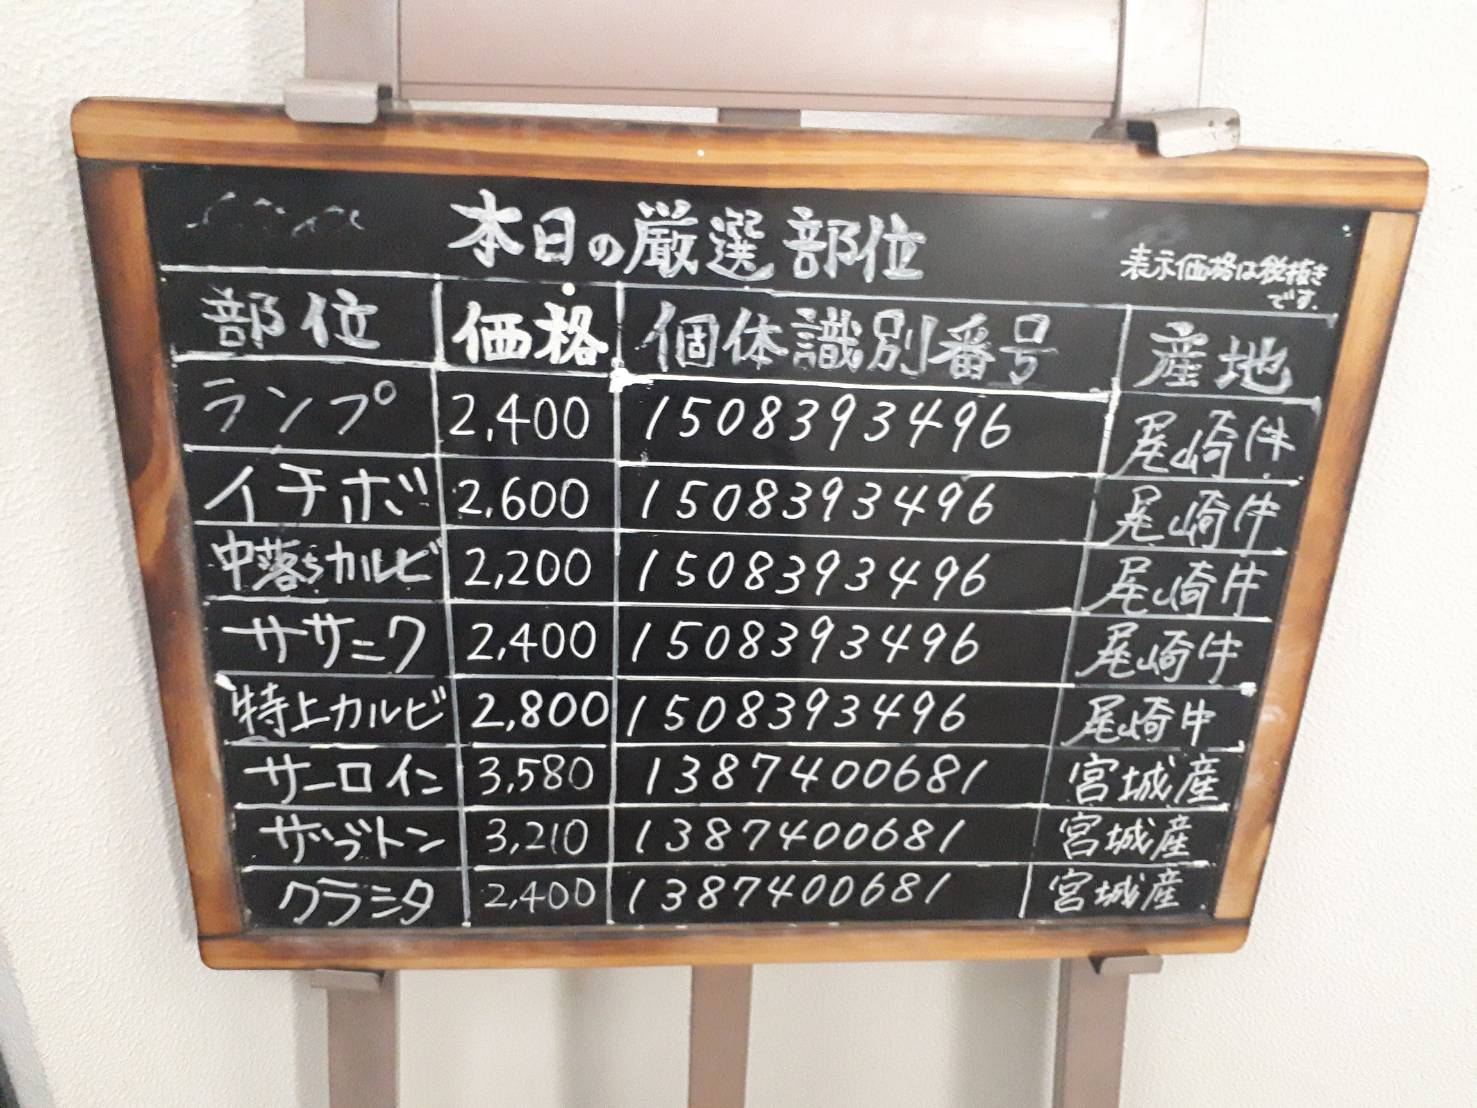 本日の厳選部位
表示価格は税抜き
です.
部位 価格 個体識別番号 産地
ランプ 2,400 1508393496 尾崎牛
イチボ 2,600 1508393496 尾崎牛
中落ちカルビ 2,200 1508393496 尾崎牛
ササニク 2,400 1508393496 尾崎牛
特上カルビ 2,800 1508393496 尾崎牛
サーロイン 3,580 1387400681 宮城産
ザブトン 3,210 1387400681 宮城産
クラシタ 2,400 1387400681 宮城産